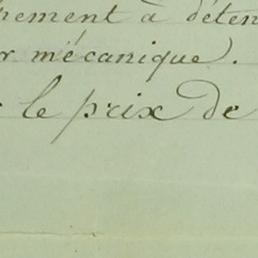 pement à déten
r mécanique).
le prix de